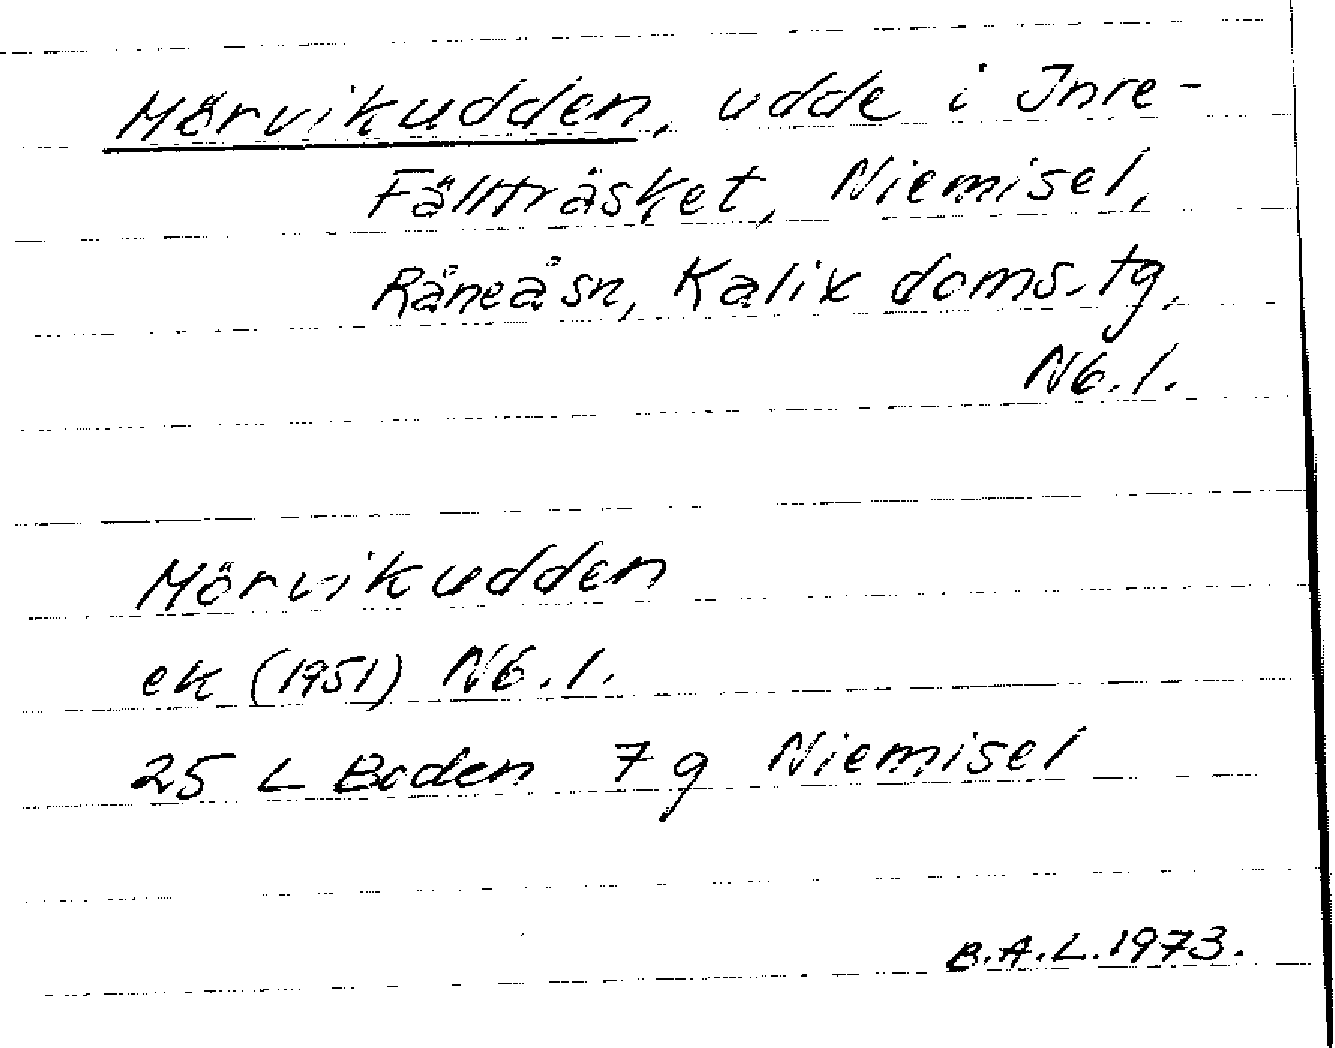 Mörvikudden, udde i Inre-
Fällträsket, Niemisel,
Råneå sn, Kalix doms. tg,
Nb. l.
Mörvikudden
ek (1951) Nb. l.
25 L Boden 7 g Niemisel
B.A.L. 1973.